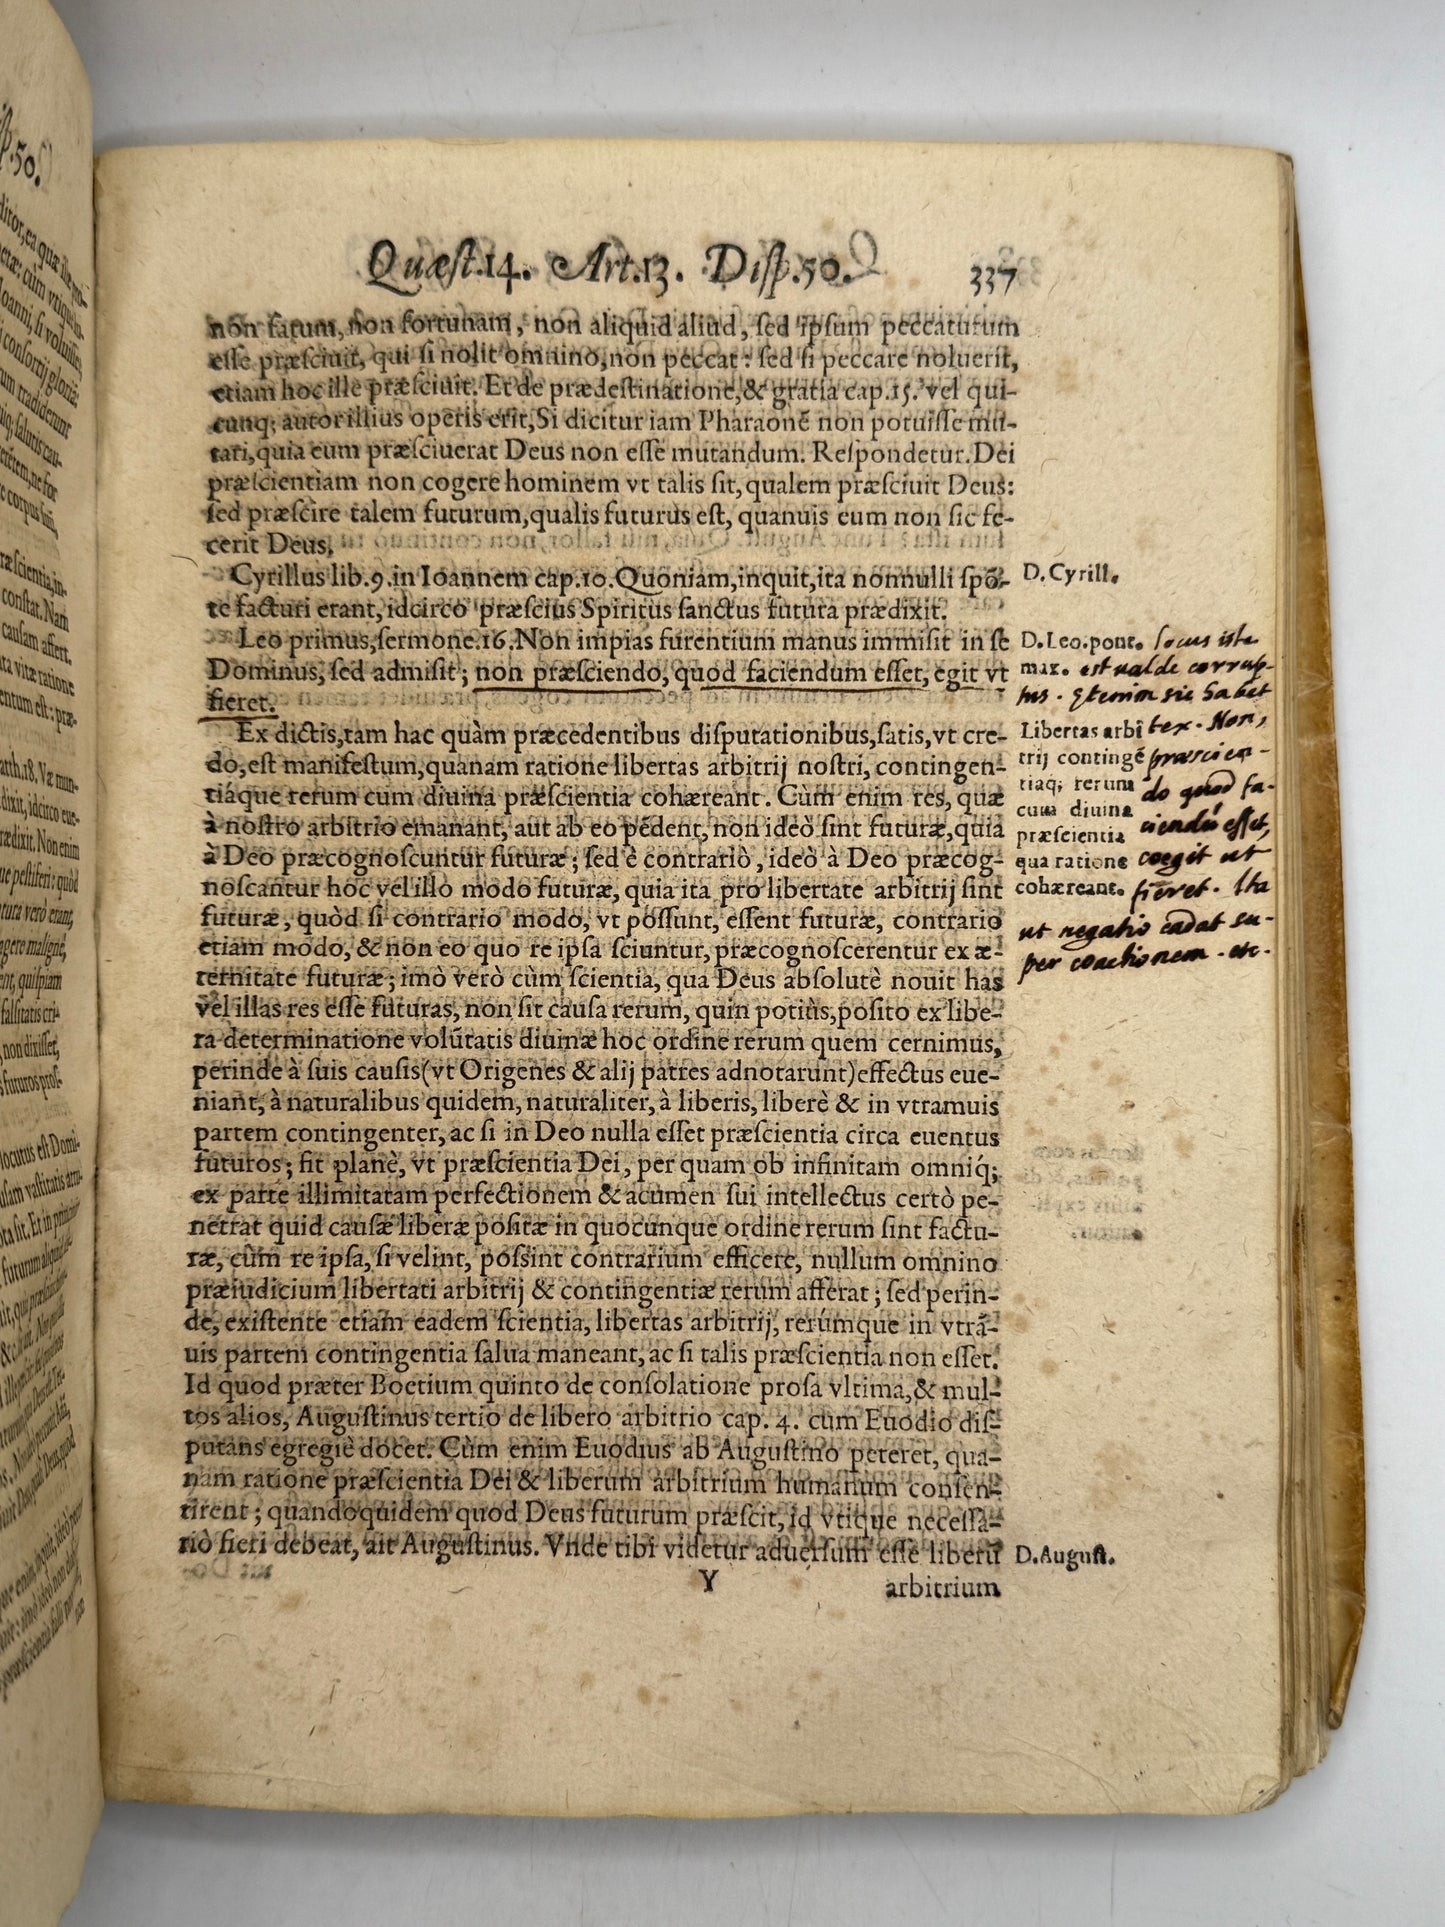 Quæst.14. Art.13. Disp.50. 337
non fatum, non fortunam, non aliquid aliud, sed ipsum peccaturum
esse præsciuit, qui si nolit omnino, non peccat: sed si peccare noluerit,
etiam hoc ille præsciuit. Et de prædestinatione, & gratia cap.15. vel qui-
cunq; autor illius operis erit, Si dicitur iam Pharaonē non potuisse mu-
tari, quia eum præsciuerat Deus non esse mutandum. Respondetur. Dei
præscientiam non cogere hominem vt talis sit, qualem præsciuit Deus:
sed præscire talem futurum, qualis futurus est, quanuis eum non sic fe-
cerit Deus.
Cyrillus lib.9. in Ioannem cap.10. Quoniam, inquit, ita nonnulli spō-
te facturi erant, idcirco præscius Spiritus sanctus futura prædixit.
D.Cyrill.
Leo primus, sermone.16. Non impias furentium manus immisit in se
Dominus, sed admisit; non præsciendo, quod faciendum esset, egit vt
fieret.
D.Leo.pont.
max.
locus iste
est valde corrup-
tus. etenim sic habet
tex. Non,
præscien-
do quod fa-
ciendū esset,
coegit ut
fieret. Ita
ut negatio cadat su-
per coactionem. etc.
Ex dictis, tam hac quàm præcedentibus disputationibus, satis, vt cre-
do, est manifestum, quanam ratione libertas arbitrij nostri, contingen-
tiáque rerum cum diuina præscientia cohæreant. Cùm enim res, quæ
à nostro arbitrio emanant, aut ab eo pēdent, non ideò sint futuræ, quia
à Deo præcognoscuntur futuræ; sed è contrariò, ideò à Deo præcog-
noscantur hoc vel illo modo futuræ, quia ita pro libertate arbitrij sint
futuræ, quòd si contrario modo, vt possunt, essent futuræ, contrario
etiam modo, & non eo quo re ipsa sciuntur, præcognoscerentur ex æ-
ternitate futuræ; imò verò cùm scientia, qua Deus absolutè nouit has
vel illas res esse futuras, non sit causa rerum, quin potiùs, posito ex libe-
ra determinatione volūtatis diuinæ hoc ordine rerum quem cernimus,
perinde à suis causis (vt Origenes & alij patres adnotarunt) effectus eue-
niant, à naturalibus quidem, naturaliter, à liberis, liberè & in vtramuis
partem contingenter, ac si in Deo nulla esset præscientia circa euentus
futuros; fit planè, vt præscientia Dei, per quam ob infinitam omniq́;
ex parte illimitatam perfectionem & acumen sui intellectus certò pe-
netrat quid causæ liberæ positæ in quocunque ordine rerum sint factu-
ræ, cùm re ipsa, si velint, possint contrarium efficere, nullum omnino
præiudicium libertati arbitrij & contingentiæ rerum afferat; sed perin-
de, existente etiam eadem scientia, libertas arbitrij, rerúmque in vtrā-
uis partem contingentia salua maneant, ac si talis præscientia non esset.
Id quod præter Boetium quinto de consolatione prosa vltima, & mul-
tos alios, Augustinus tertio de libero arbitrio cap. 4. cum Euodio dis-
putans egregiè docet. Cùm enim Euodius ab Augustino peteret, qua-
nam ratione præscientia Dei & liberum arbitrium humanum consen-
tirent; quandoquidem quod Deus futurum præscit, id vtique necessa-
riò fieri debeat, ait Augustinus. Vnde tibi videtur aduersum esse liberū
Libertas arbi
trij contingē
tiaq; rerum
cum diuina
præscientia
qua ratione
cohæreant.
D.August.
Y arbitrium